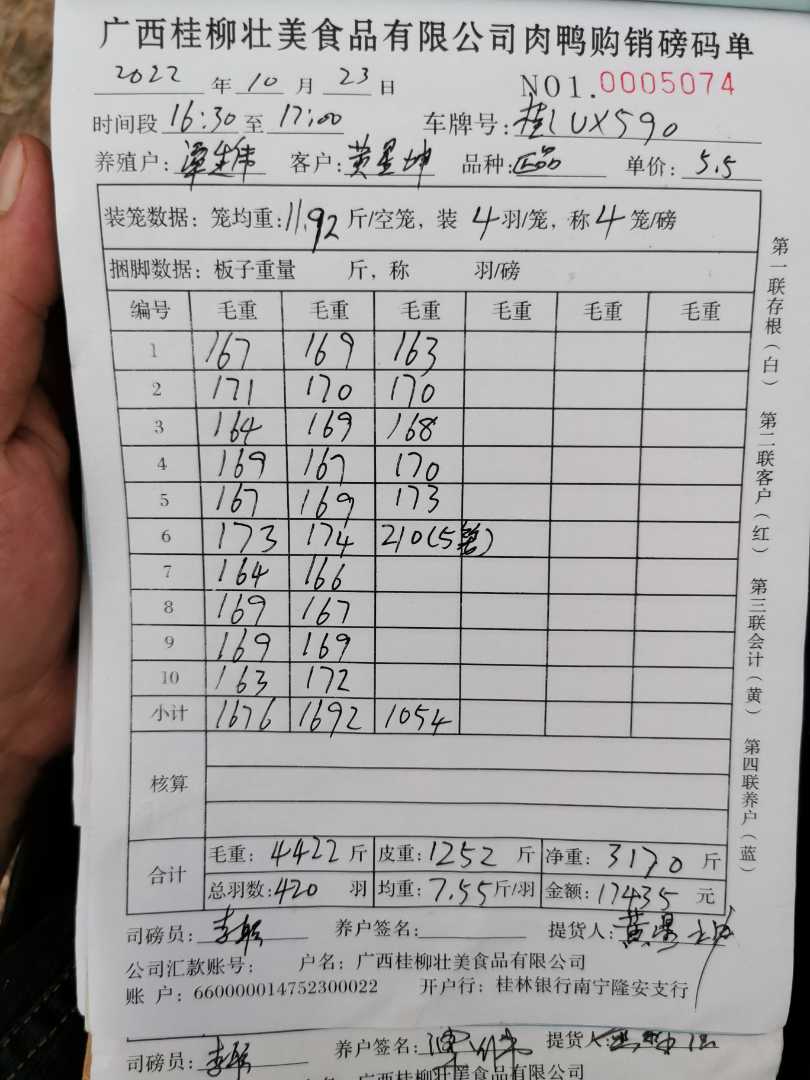 广西桂柳壮美食品有限公司肉鸭购销磅码单
2022 年 10 月 23 日 NO1.0005074
时间段 16:30 至 17:00 车牌号: 桂LUX590
养殖户: 客户: 黄星坤 品种: 正品 单价: 5.5
装笼数据: 笼均重: 11.92 斤/空笼, 装 4 羽/笼, 称 4 笼/磅
捆脚数据: 板子重量 斤, 称 羽/磅
编号 毛重 毛重 毛重 毛重 毛重 毛重
1 167 169 163
2 171 170 170
3 164 169 168
4 169 167 170
5 167 169 173
6 173 174 210(5笼)
7 164 166
8 169 167
9 169 169
10 163 172
小计 1676 1692 1054
核算
合计 毛重: 4422 斤 皮重: 1252 斤 净重: 3170 斤
总羽数: 420 羽 均重: 7.55 斤/羽 金额: 17435 元
司磅员: 养户签名: 提货人: 黄星坤
公司汇款账号: 户名: 广西桂柳壮美食品有限公司
账 户: 660000014752300022 开户行: 桂林银行南宁隆安支行
第一联存根(白)
第二联客户(红)
第三联会计(黄)
第四联养户(蓝)
司磅员: 养户签名: 提货人:
广西桂柳壮美食品有限公司